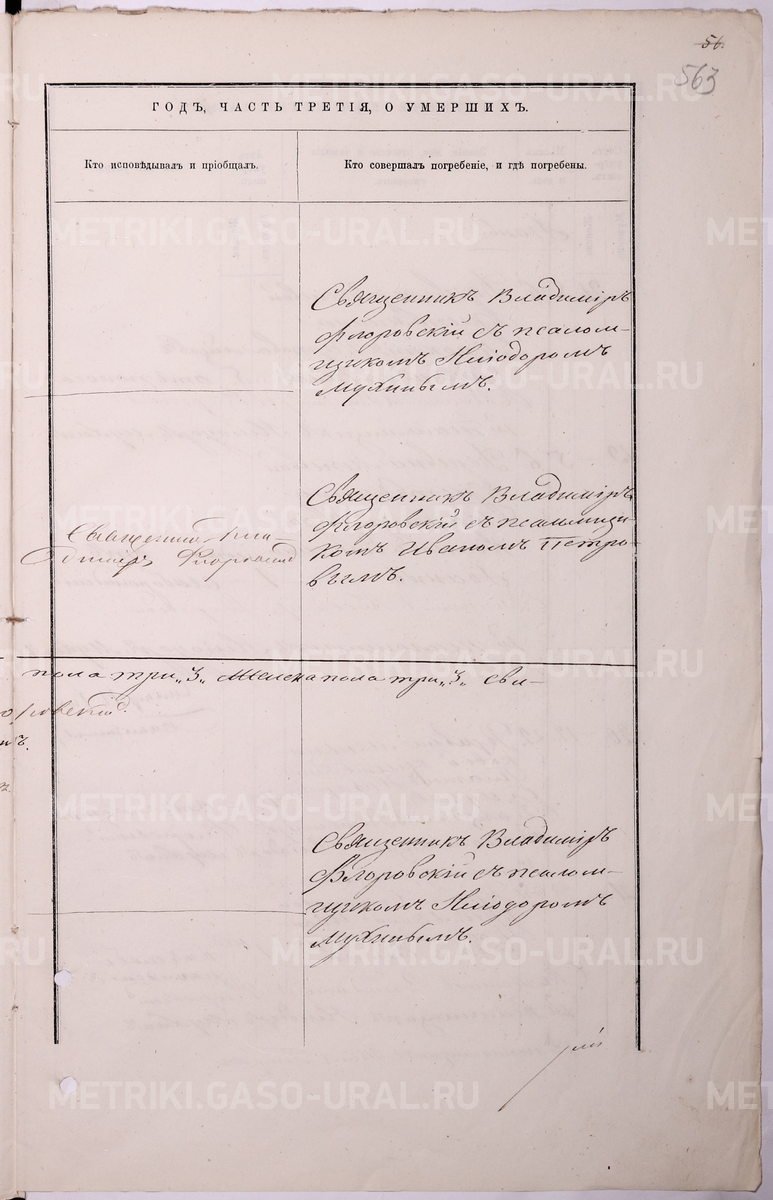 56.
563
ГОДЪ, ЧАСТЬ ТРЕТІЯ, О УМЕРШИХЪ.
Кто исповѣдывалъ и пріобщалъ.
Кто совершалъ погребеніе, и гдѣ погребены.
Священникъ Владиміръ
Флоровскій съ псалом-
щикомъ Иліодоромъ
Мухинымъ.
Священникъ Вла-
диміръ Флоровскій
Священникъ Владиміръ
Флоровскій съ псаломщи-
комъ Иваномъ Петро-
вымъ.
пола три „3„ Женска пола три „3„ Свя-
Священникъ Владиміръ
Флоровскій съ псалом-
щикомъ Иліодоромъ
Мухинымъ.
METRIKI.GASO-URAL.RU